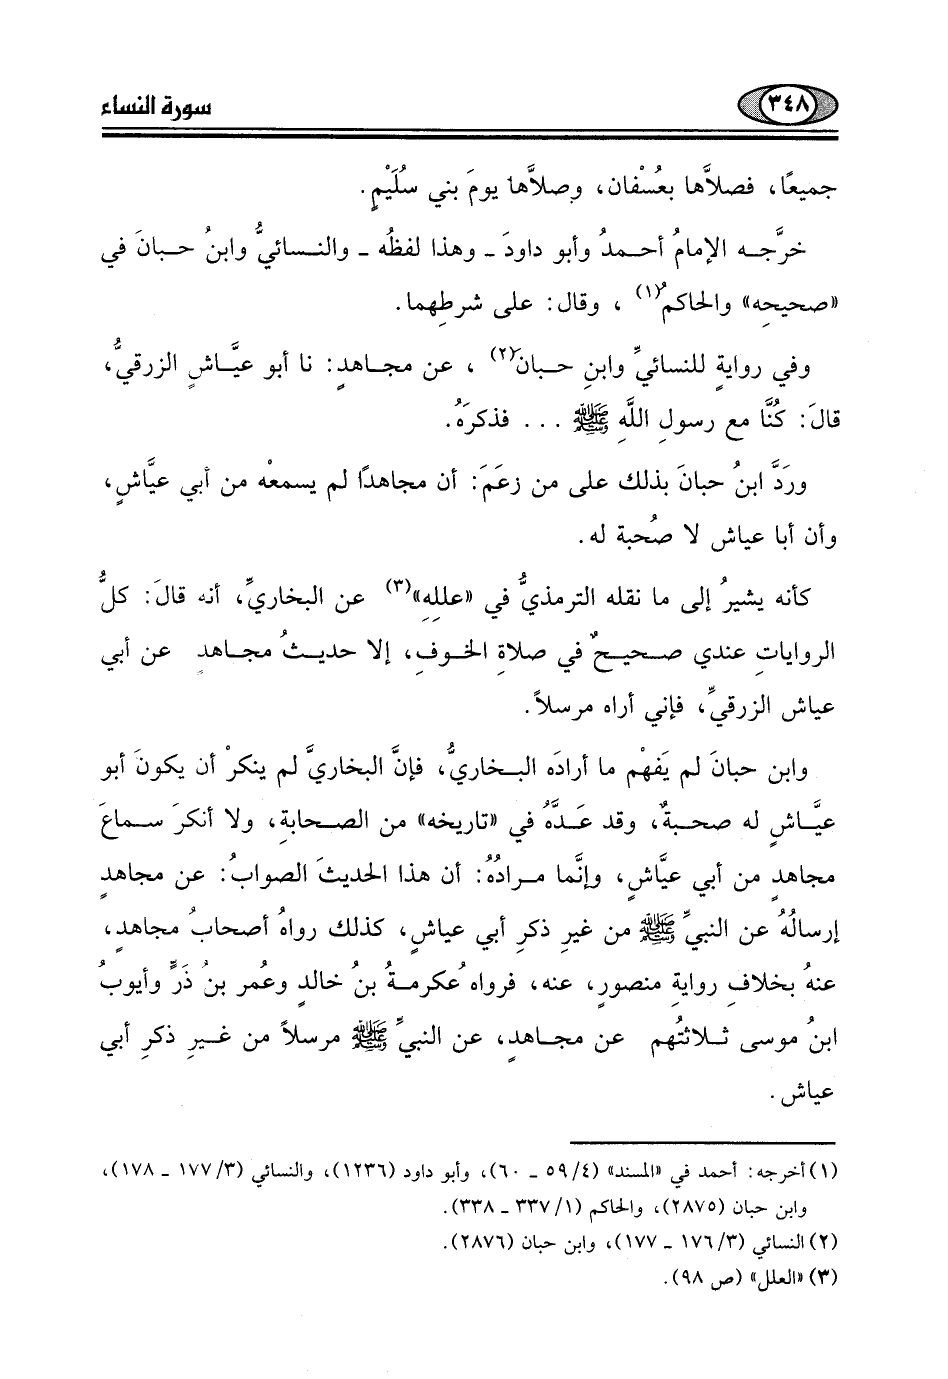 ٣٤٨ سورة النساء
جميعًا، فصلاَّها بعُسْفان، وصلاَّها يومَ بني سُلَيْمٍ.
خرَّجــه الإمامُ أحــمدُ وأبو داودَ ـ وهذا لفظُه ـ والنــسائيُّ وابنُ حبــانَ في
«صحيحِه» والحاكمُ(١) ، وقال: على شرطِهما.
وفي روايةٍ للنسائيِّ وابنِ حــبان(٢) ، عن مجــاهدٍ: نا أبو عيَّاشٍ الزرقيُّ،
قالَ: كُنَّا مع رسولِ اللَّهِ ﷺ ... فذكرَهُ.
وردَّ ابنُ حبانَ بذلك على من زعَمَ: أن مجاهدًا لم يسمعْه من أبي عيَّاشٍ،
وأن أبا عياش لا صُحبة له.
كأنه يشيرُ إلى ما نقله الترمذيُّ في «عللِه»(٣) عن البخاريِّ، أنه قالَ: كلُّ
الرواياتِ عندي صــحيــحٌ في صلاةِ الخــوفِ، إلا حديــثُ مجــاهدٍ عن أبي
عياش الزرقيِّ، فإني أراه مرسلاً.
وابن حبانَ لم يَفهمْ ما أرادَه البــخاريُّ، فإنَّ البخاريَّ لم ينكرْ أن يكونَ أبو
عيَّــاشٍ له صحبــةٌ، وقد عَــدَّهُ في «تاريخه» من الصــحابةِ، ولا أنكرَ ســماعَ
مجاهدٍ من أبي عيَّاشٍ، وإنَّما مــرادُهُ: أن هذا الحديثَ الصوابُ: عن مجاهدٍ
إرسالُهُ عن النبيِّ ﷺ من غيرِ ذكرِ أبي عياشٍ، كذلك رواهُ أصحابُ مجاهدٍ،
عنهُ بخلافِ روايةِ منصورٍ، عنه، فرواه عُكرمــةُ بنُ خالدٍ وعُمر بنُ ذَرٍّ وأيوبُ
ابنُ موسى ثــلاثتُهم عن مجــاهدٍ، عن النبيِّ ﷺ مرسلاً من غــيرِ ذكرِ أبي
عياش.
(١) أخرجه: أحمد في «المسند» (٤/ ٥٩ ـ ٦٠)، وأبو داود (١٢٣٦)، والنسائي (٣/ ١٧٧ ـ ١٧٨)،
وابن حبان (٢٨٧٥)، والحاكم (١/ ٣٣٧ ـ ٣٣٨).
(٢) النسائي (٣/ ١٧٦ ـ ١٧٧)، وابن حبان (٢٨٧٦).
(٣) «العلل» (ص ٩٨).